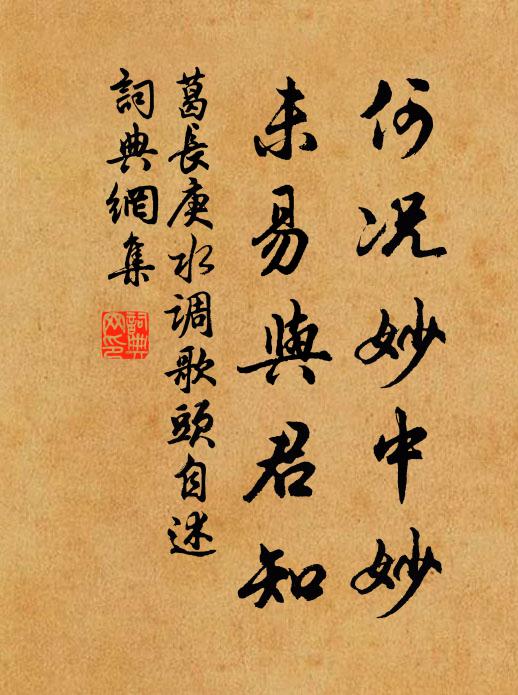 何况妙中妙
未易與君知
葛長庚水调歌頭自述
詞典網集
詞典